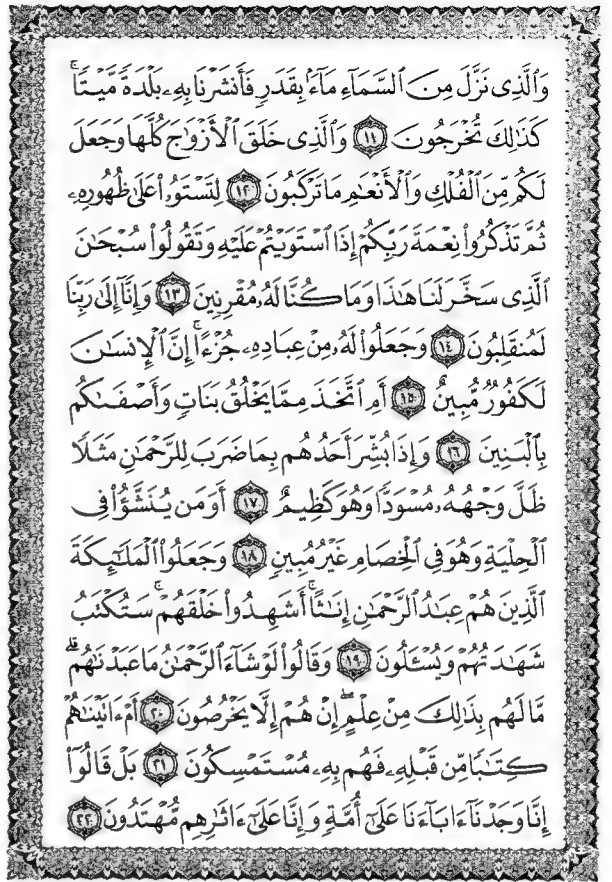 وَٱلَّذِى نَزَّلَ مِنَ ٱلسَّمَآءِ مَآءَۢ بِقَدَرٍ فَأَنشَرْنَا بِهِۦ بَلْدَةً مَّيْتًاۚ
كَذَٰلِكَ تُخْرَجُونَ ١١ وَٱلَّذِى خَلَقَ ٱلْأَزْوَٰجَ كُلَّهَا وَجَعَلَ
لَكُم مِّنَ ٱلْفُلْكِ وَٱلْأَنْعَٰمِ مَا تَرْكَبُونَ ١٢ لِتَسْتَوُۥا۟ عَلَىٰ ظُهُورِهِۦ
ثُمَّ تَذْكُرُوا۟ نِعْمَةَ رَبِّكُمْ إِذَا ٱسْتَوَيْتُمْ عَلَيْهِ وَتَقُولُوا۟ سُبْحَٰنَ
ٱلَّذِى سَخَّرَ لَنَا هَٰذَا وَمَا كُنَّا لَهُۥ مُقْرِنِينَ ١٣ وَإِنَّآ إِلَىٰ رَبِّنَا
لَمُنقَلِبُونَ ١٤ وَجَعَلُوا۟ لَهُۥ مِنْ عِبَادِهِۦ جُزْءًاۚ إِنَّ ٱلْإِنسَٰنَ
لَكَفُورٌ مُّبِينٌ ١٥ أَمِ ٱتَّخَذَ مِمَّا يَخْلُقُ بَنَاتٍ وَأَصْفَىٰكُم
بِٱلْبَنِينَ ١٦ وَإِذَا بُشِّرَ أَحَدُهُم بِمَا ضَرَبَ لِلرَّحْمَٰنِ مَثَلًا
ظَلَّ وَجْهُهُۥ مُسْوَدًّا وَهُوَ كَظِيمٌ ١٧ أَوَمَن يُنَشَّؤُا۟ فِى
ٱلْحِلْيَةِ وَهُوَ فِى ٱلْخِصَامِ غَيْرُ مُبِينٍ ١٨ وَجَعَلُوا۟ ٱلْمَلَٰٓئِكَةَ
ٱلَّذِينَ هُمْ عِبَٰدُ ٱلرَّحْمَٰنِ إِنَٰثًاۚ أَشَهِدُوا۟ خَلْقَهُمْۚ سَتُكْتَبُ
شَهَٰدَتُهُمْ وَيُسْـَٔلُونَ ١٩ وَقَالُوا۟ لَوْ شَآءَ ٱلرَّحْمَٰنُ مَا عَبَدْنَٰهُمۗ
مَّا لَهُم بِذَٰلِكَ مِنْ عِلْمٍۖ إِنْ هُمْ إِلَّا يَخْرُصُونَ ٢٠ أَمْ ءَاتَيْنَٰهُمْ
كِتَٰبًا مِّن قَبْلِهِۦ فَهُم بِهِۦ مُسْتَمْسِكُونَ ٢١ بَلْ قَالُوٓا۟
إِنَّا وَجَدْنَآ ءَابَآءَنَا عَلَىٰٓ أُمَّةٍ وَإِنَّا عَلَىٰٓ ءَاثَٰرِهِم مُّهْتَدُونَ ٢٢